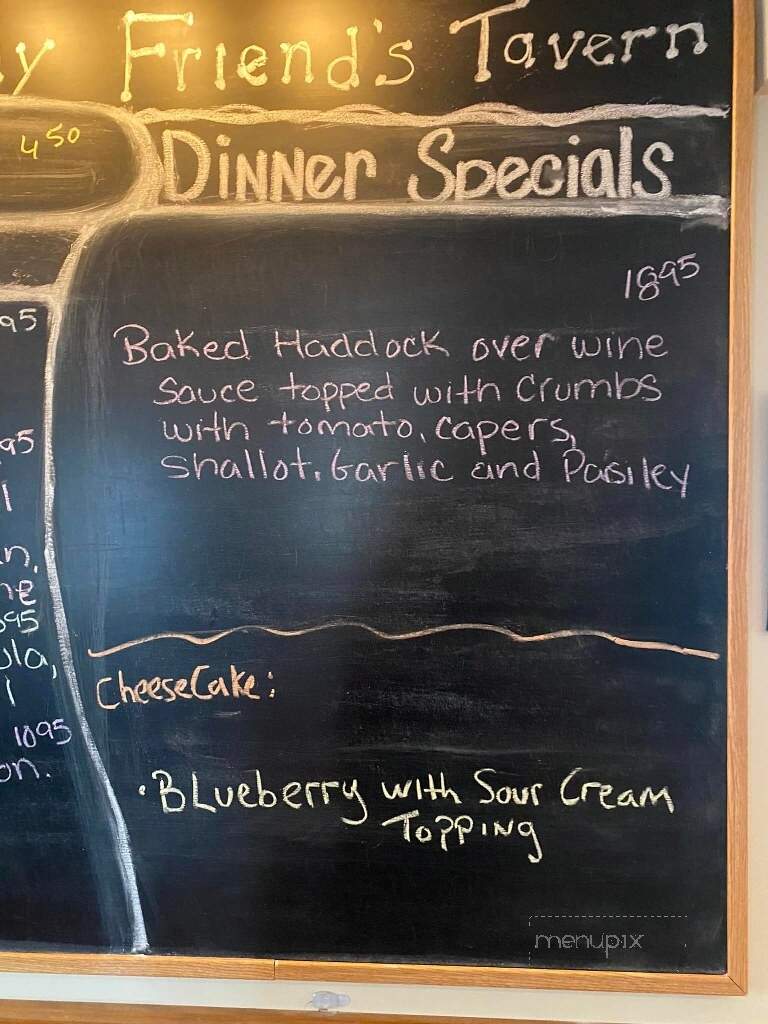 Friend's Tavern
450
Dinner Specials
1895
95
Baked Haddock over wine
Sauce topped with Crumbs
with tomato, capers,
Shallot, Garlic and Parsley
95
95
1095
CheeseCake:
• BLueberry with Sour Cream
Topping
menupix